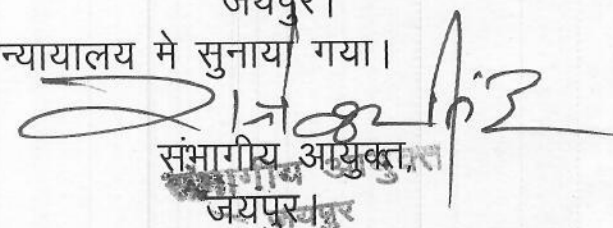 जयपुर।
न्यायालय मे सुनाया गया।
संभागीय आयुक्त,
जयपुर।